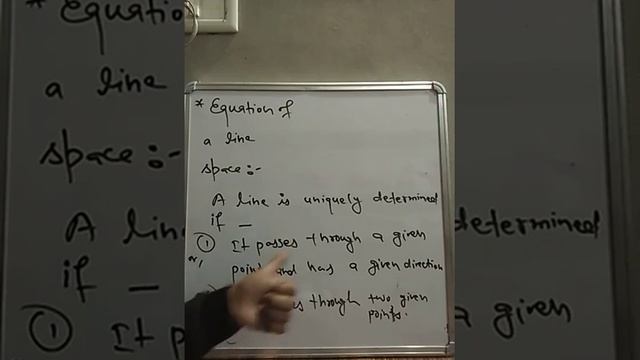 * Equation of
a line
space:-
A line is uniquely determined
if —
① It passes through a given
or,
point and has a given direction
through two given
points.